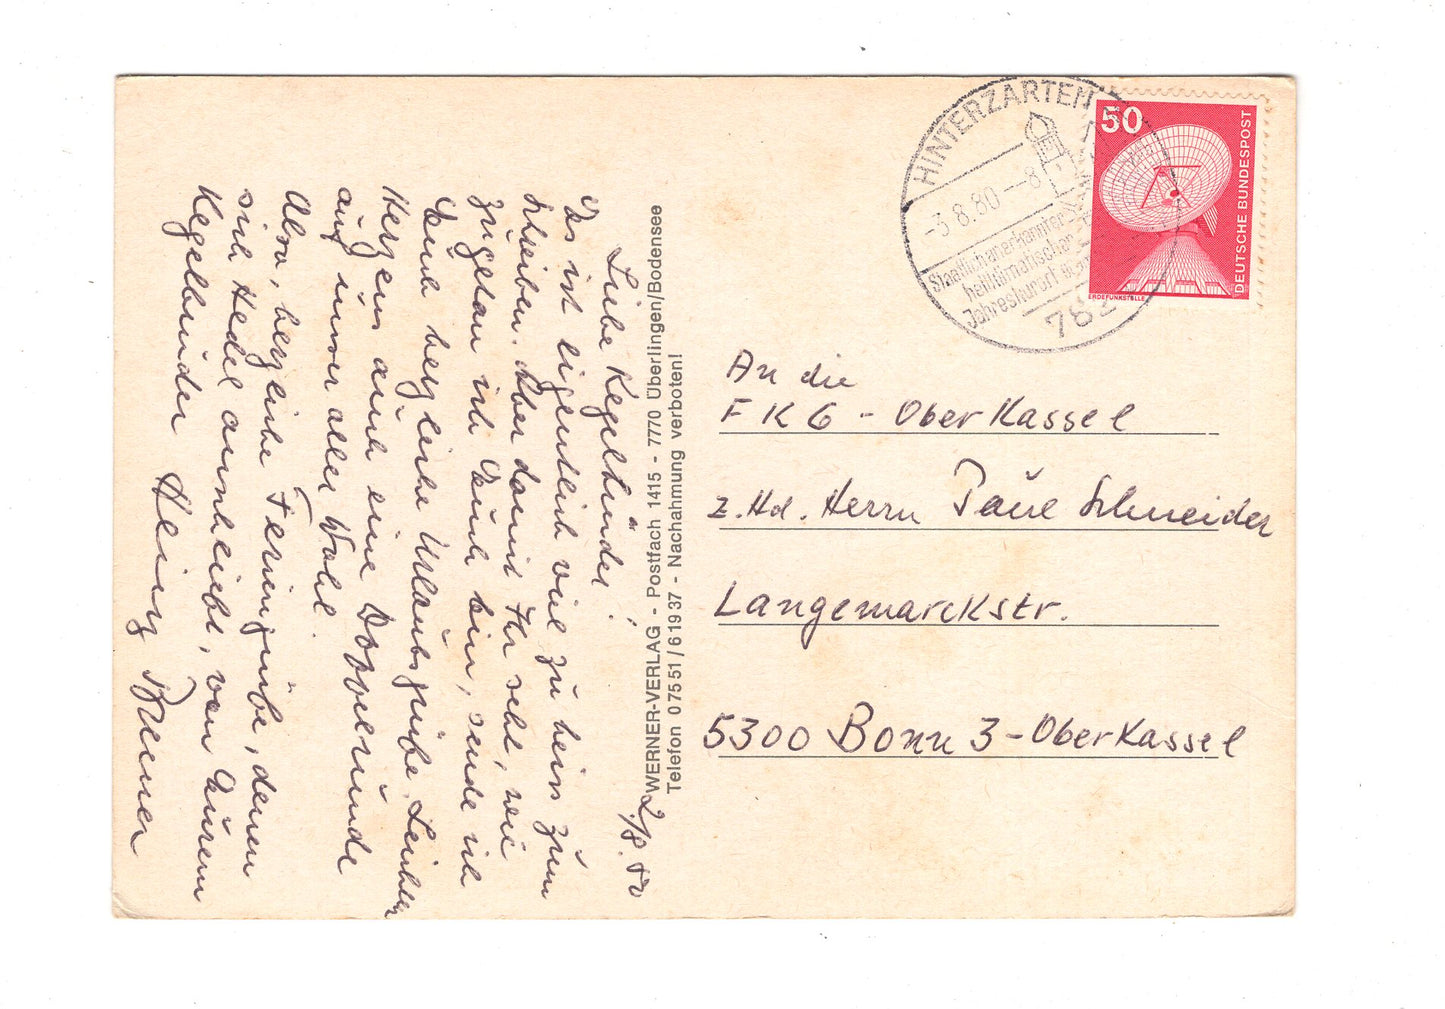 2/8.80
Liebe Kegelbrüder,
Es ist eigentlich viel zu heiss zum
schreiben. Aber damit Ihr seht, wie
zugetan ich Euch bin, sende ich
Euch herzliche Urlaubsgrüße. Leichten
Herzens auch eine Doppelrunde
auf unser aller Wohl.
Also, herzliche Feriengrüße, denen
sich Hedel anschließt, von Eurem
Kegelbruder
Heinz
WERNER-VERLAG - Postfach 1415 - 7770 Überlingen/Bodensee
Telefon 0 75 51 / 6 19 37 - Nachahmung verboten!
HINTERZARTEN
-3.8.80--8
Staatlich anerkannter
heilklimatischer
Jahreskurort
782
50
DEUTSCHE BUNDESPOST
ERDEFUNKSTELLE
An die
FKG - Oberkassel
z.Hd. Herrn Paul Schneider
Langemarckstr.
5300 Bonn 3-Oberkassel